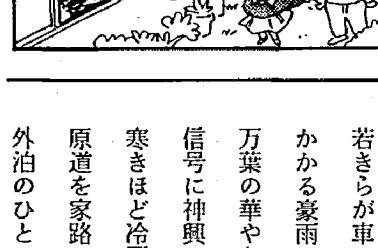 若きらが車
かかる豪雨
万葉の華や
信号に神興
寒きほど冷
原道を家路
外泊のひと